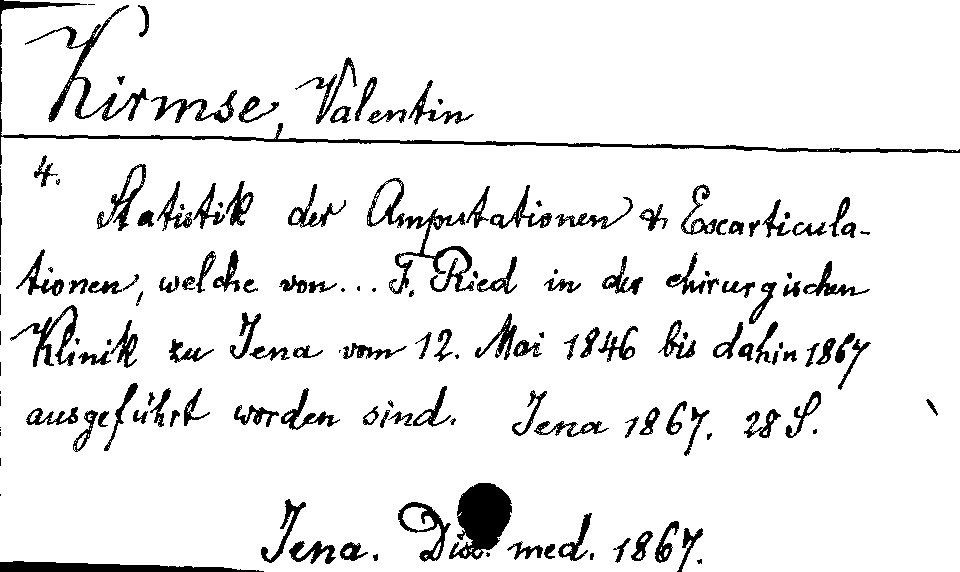 Kirmse, Valentin
4.
Statistik der Amputationen & Exarticula-
tionen, welche von... F. Ried in der chirurgischen
Klinik zu Jena vom 12. Mai 1846 bis dahin 1867
ausgeführt worden sind. Jena 1867. 28 S.
Jena. Diss. med. 1867.